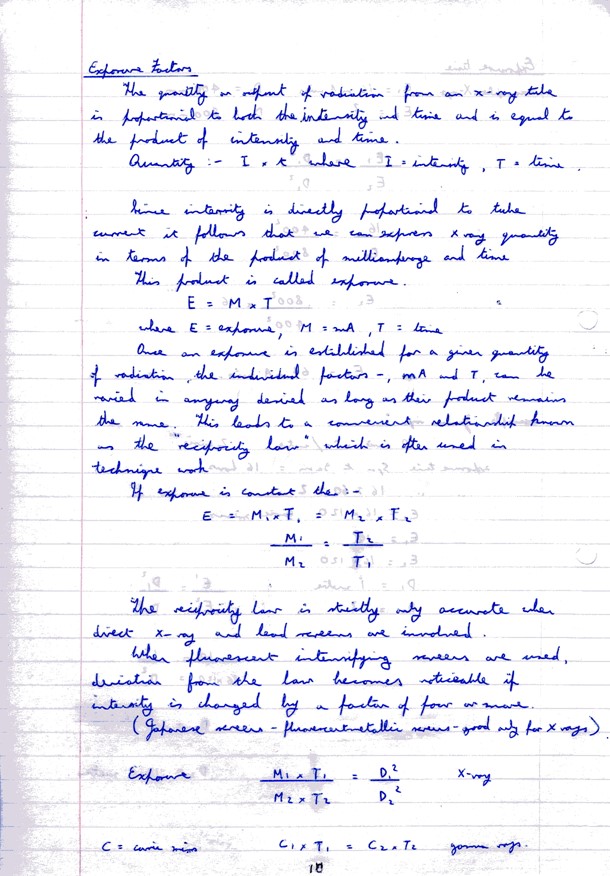 Exposure Factors
The quantity or output of radiation from an x-ray tube
is proportional to both the intensity and time and is equal to
the product of intensity and time.
Quantity :- I x t where I = intensity, T = time.
Since intensity is directly proportional to tube
current it follows that we can express x ray quantity
in terms of the product of milliamperage and time
This product is called exposure.
E = M x T
where E = exposure, M = mA, T = time
Once an exposure is established for a given quantity
of radiation, the individual factors -, mA and T, can be
varied in anyway desired as long as their product remains
the same. This leads to a convenient relationship known
as the "reciprocity law" which is often used in
technique work
If exposure is constant the :-
E = M1 x T1 = M2 x T2
M1 = T2
M2 T1
The reciprocity law is strictly only accurate when
direct x-ray and lead screens are involved.
When fluorescent intensifying screens are used,
deviation from the law becomes noticeable if
intensity is changed by a factor of four or more.
(Japanese screens - fluorescentmetallic screens - good only for X rays)
Exposure M1 x T1 = D1² X-ray
M2 x T2 D2²
C = curie C1 x T1 = C2 x T2 gamma rays.